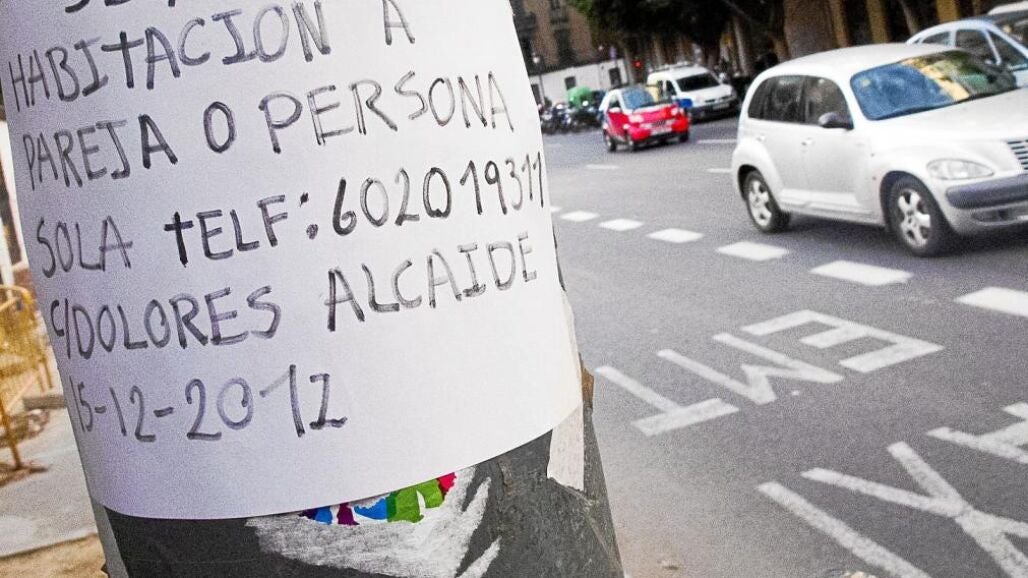 HABITACION A
PAREJA O PERSONA
SOLA TELF: 602019311
C/DOLORES ALCAIDE
15-12-2012
EMT